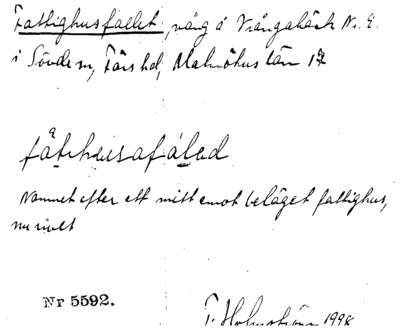 Fattighusfallet, väg å Vrångabäck Nr. 9.
i Sövde sn, Färs hd, Malmöhus län
fåtihusafáled
Namnet efter ett mitt emot beläget fattighus,
nu rivet
Nr 5592.
T. Holmström